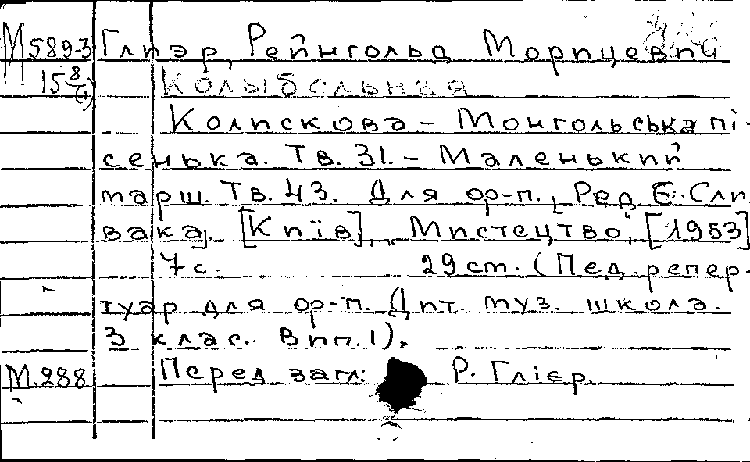 М 589-3 Глиэр, Рейнгольд Морицевич
15 8/4 Колыбельная
Колискова – Монгольська пі-
сенька. Тв. 31. – Маленький
марш. Тв. 43. Для ф-п., [Ред. Є. Сли
вака]. [Київ], „Мистецтво“, [1953]
7 с. 29 cm. (Пед. репер-
туар для ф-п. Дит. муз. школа.
3 клас. Вип. 1).
М.288 Перед загл: Р. Глієр.